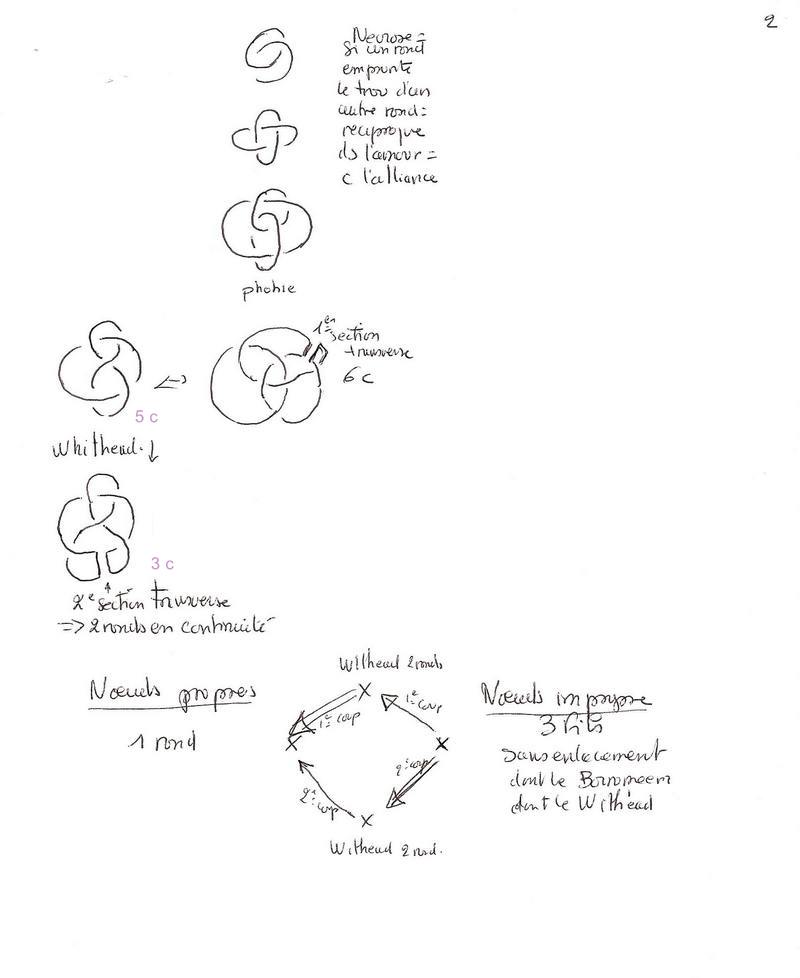 2
Nevrose =
si un rond
emprunte
le trou d'un
autre rond =
reciproque
ds l'amour =
c l'alliance
phobie
1en
section
transverse
6 c
5 c
Whithead.
3 c
2e section transverse
=> 2 ronds en continuité
Withead 2 ronds
Nœuds propres
1 rond
1e coup
1e coup
2e coup
2e coup
Withead 2 rond.
Nœuds impropre
3 fils
sans enlacement
dont le Borromeen
dont le Withéad